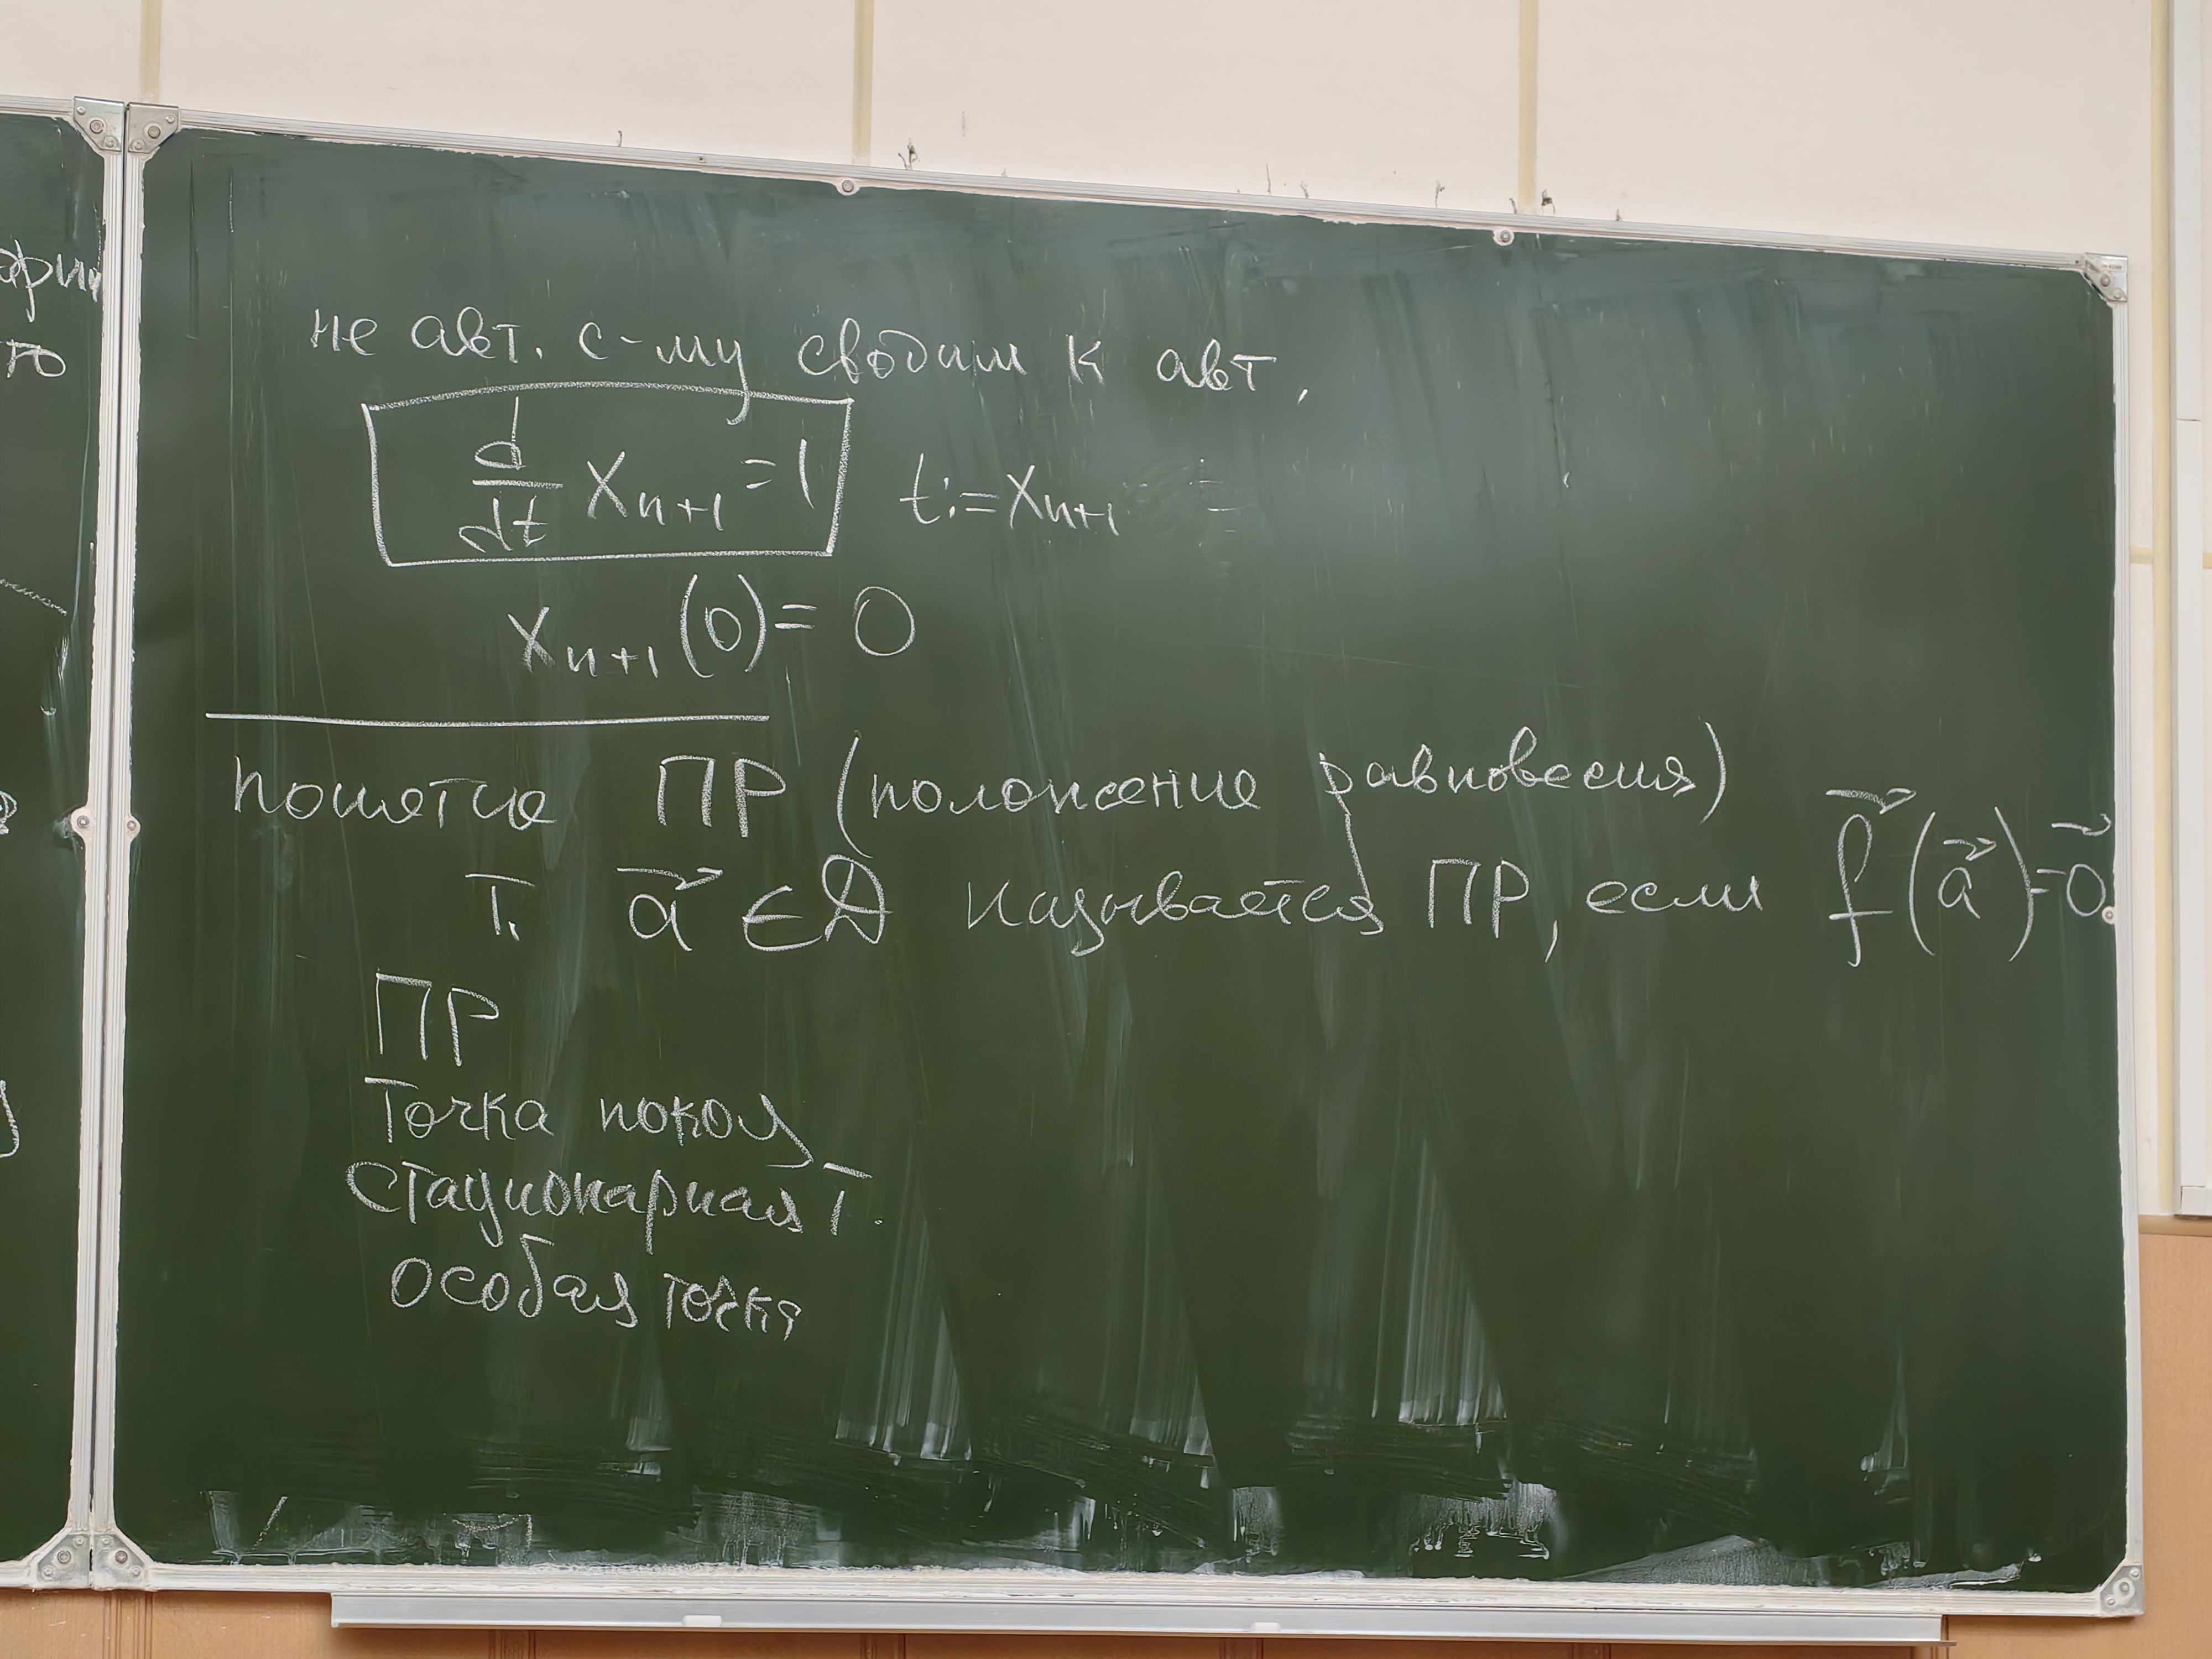 не авт. с-му сводим к авт.
d/dt x_{n+1} = 1 t := x_{n+1}
x_{n+1}(0) = 0
понятие ПР (положение равновесия)
т. a⃗ ∈ D называется ПР, если f⃗(a⃗) = 0⃗
ПР
Точка покоя
стационарная т.
особая точка